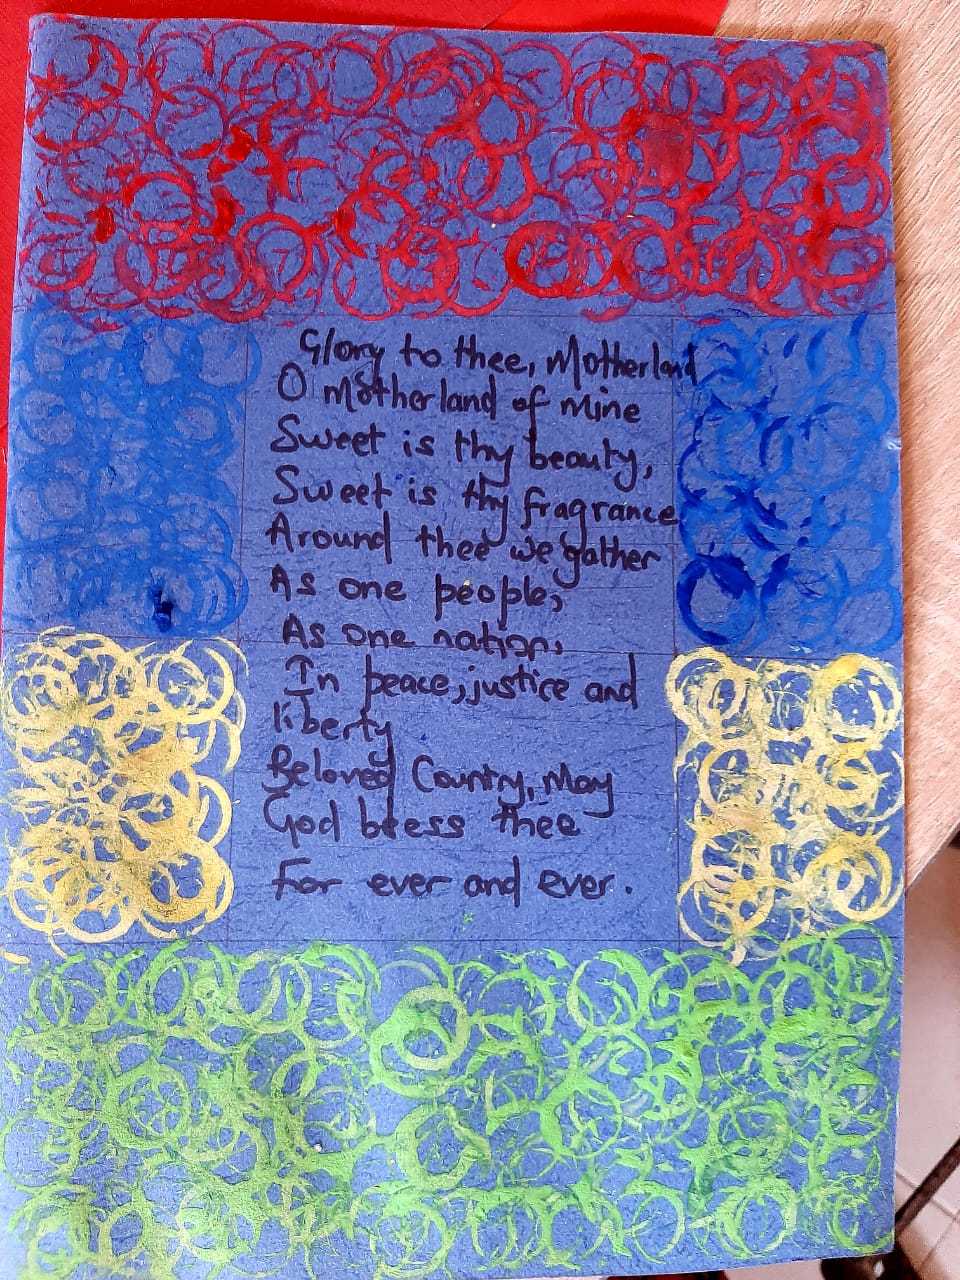 Glory to thee, Motherland
O Motherland of mine
Sweet is thy beauty,
Sweet is thy fragrance
Around thee we gather
As one people,
As one nation,
In peace, justice and
liberty
Beloved Country, May
God bless thee
For ever and ever.